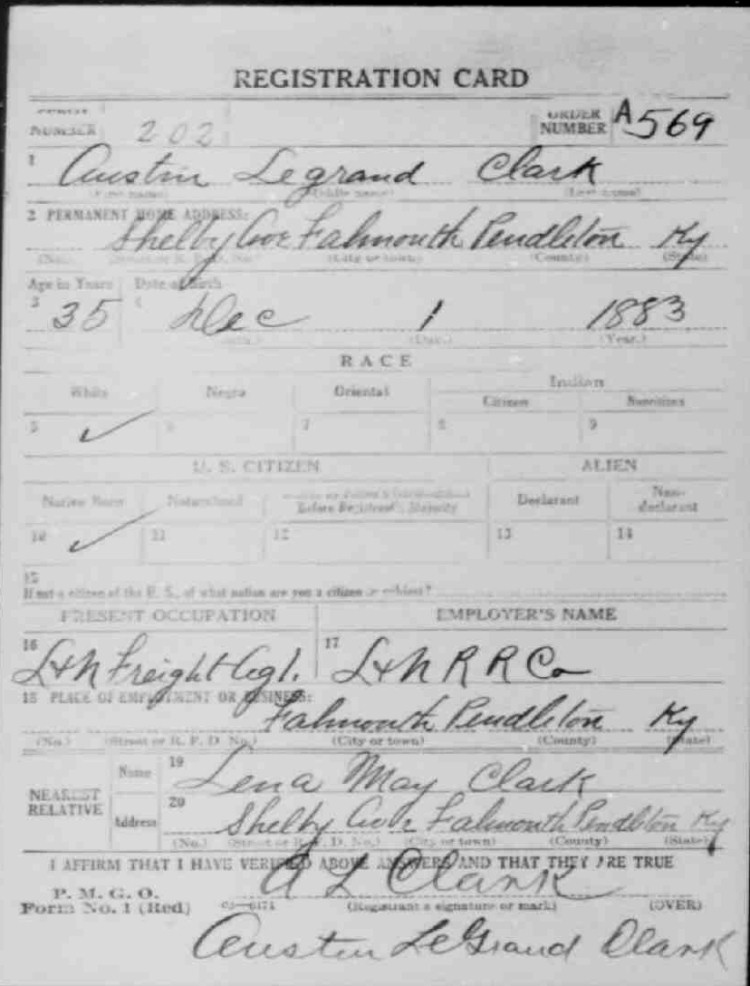 REGISTRATION CARD
SERIAL NUMBER 202 ORDER NUMBER A569
1 Austin Legrand Clark
(First name) (Middle name) (Last name)
2 PERMANENT HOME ADDRESS:
Shelby Ave Falmouth Pendleton Ky
(No.) (Street or R. F. D. No.) (City or town) (County) (State)
Age in Years Date of Birth
3 35 4 Dec 1 1883
(Day.) (Year.)
RACE
White Negro Oriental Indian
Citizen Noncitizen
5 ✓ 6 7 8 9
U. S. CITIZEN ALIEN
Native Born Naturalized Citizen by Father's Naturalization Before Registrant's Majority Declarant Non-declarant
10 ✓ 11 12 13 14
15
If not a citizen of the U. S., of what nation are you a citizen or subject?
PRESENT OCCUPATION EMPLOYER'S NAME
16 L+N Freight Agt. 17 L+N R R Co
18 PLACE OF EMPLOYMENT OR BUSINESS:
Falmouth Pendleton Ky
(No.) (Street or R. F. D. No.) (City or town) (County) (State)
NEAREST RELATIVE
Name 19 Lena May Clark
Address 20 Shelby Ave Falmouth Pendleton Ky
(No.) (Street or R. F. D. No.) (City or town) (County) (State)
I AFFIRM THAT I HAVE VERIFIED ABOVE ANSWERS AND THAT THEY ARE TRUE
P. M. G. O.
Form No. 1 (Red) 03—6171 A L Clark
(Registrant's signature or mark) (OVER)
Austin LeGrand Clark